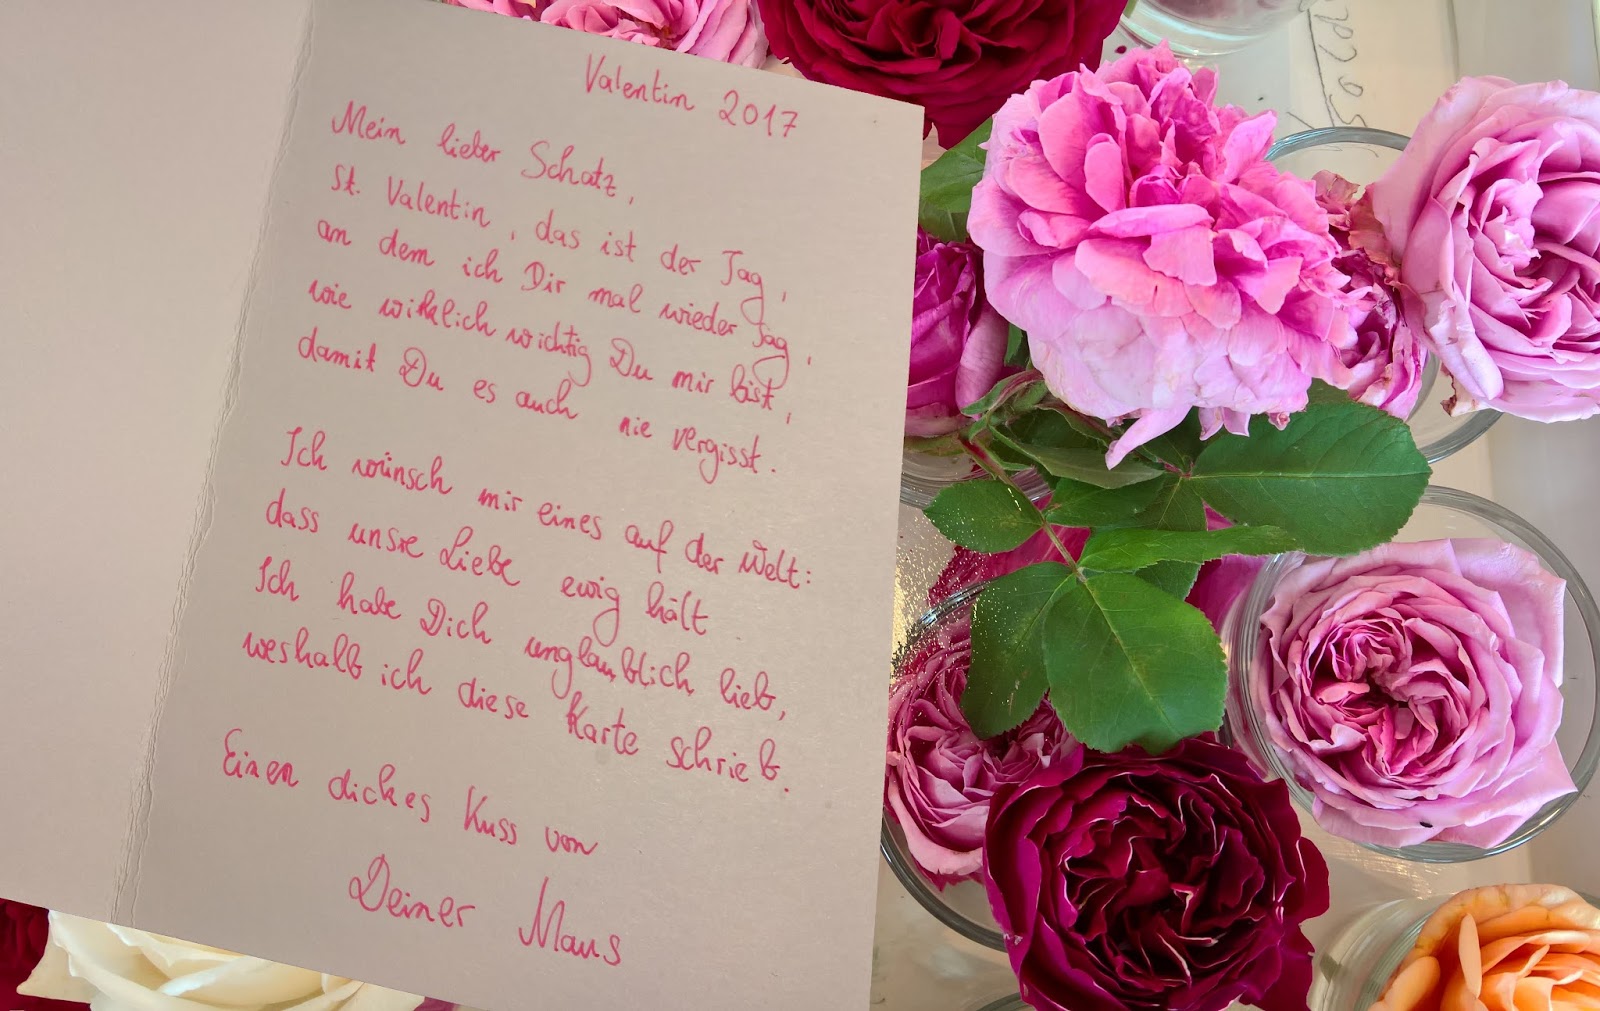 Valentin 2017
Mein lieber Schatz,
St. Valentin, das ist der Tag,
an dem ich Dir mal wieder sag,
wie wirklich wichtig Du mir bist,
damit Du es auch nie vergisst.
Ich wünsch mir eines auf der Welt:
dass unsre Liebe ewig hält
Ich habe Dich unglaublich lieb,
weshalb ich diese Karte schrieb.
Einen dickes Kuss von
Deiner Maus